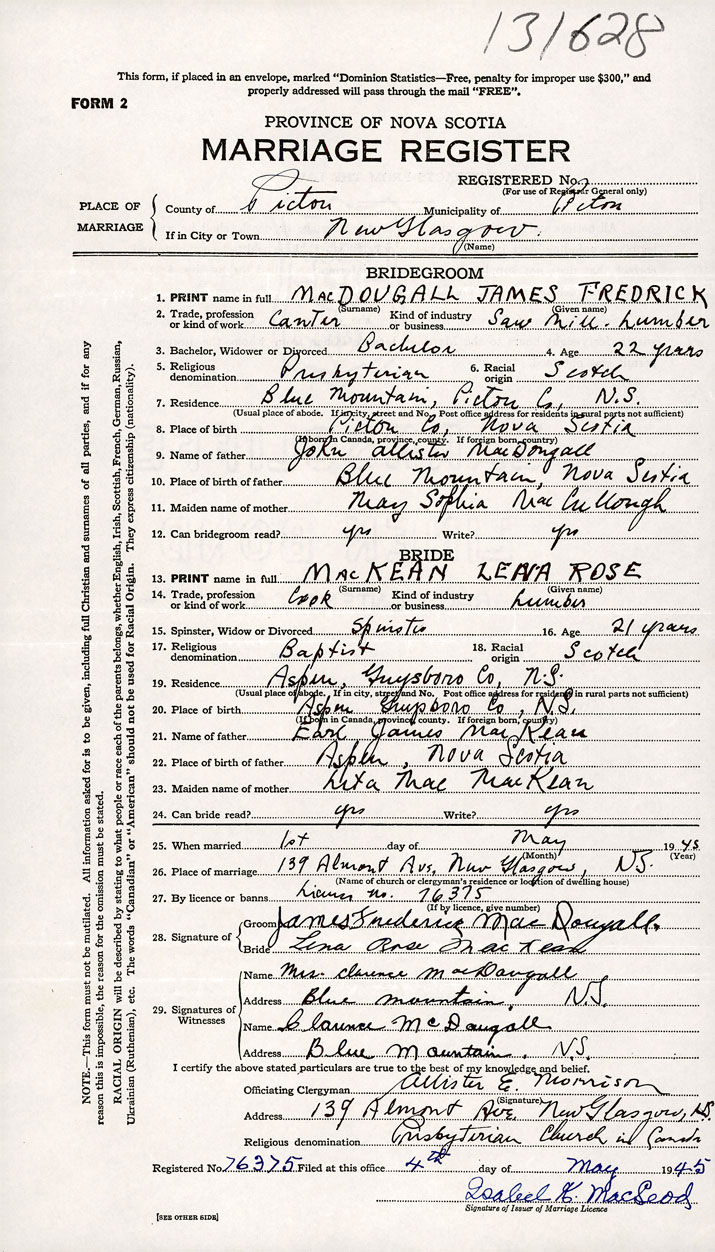 131628
This form, if placed in an envelope, marked "Dominion Statistics—Free, penalty for improper use $300," and
properly addressed will pass through the mail "FREE".
FORM 2
PROVINCE OF NOVA SCOTIA
MARRIAGE REGISTER
REGISTERED No.
(For use of Registrar General only)
PLACE OF MARRIAGE
County of Picton Municipality of Picton
If in City or Town New Glasgow.
(Name)
BRIDEGROOM
1. PRINT name in full MACDOUGALL JAMES FREDRICK
(Surname) (Given name)
2. Trade, profession or kind of work Canter Kind of industry or business Saw Mill. Lumber
3. Bachelor, Widower or Divorced Bachelor 4. Age 22 years
5. Religious denomination Presbyterian 6. Racial origin Scotch
7. Residence Blue Mountain, Picton Co., N.S.
(Usual place of abode. If in city, street and No. Post office address for residents in rural parts not sufficient)
8. Place of birth Picton Co, Nova Scotia
(If born in Canada, province, county. If foreign born, country)
9. Name of father John Allister MacDougall
10. Place of birth of father Blue Mountain, Nova Scotia
11. Maiden name of mother May Sophia MacCullough
12. Can bridegroom read? yes Write? yes
BRIDE
13. PRINT name in full MACKEAN LENA ROSE
(Surname) (Given name)
14. Trade, profession or kind of work Cook Kind of industry or business Lumber
15. Spinster, Widow or Divorced Spinster 16. Age 21 years
17. Religious denomination Baptist 18. Racial origin Scotch
19. Residence Aspen, Guysboro Co, N.S.
(Usual place of abode. If in city, street and No. Post office address for residents in rural parts not sufficient)
20. Place of birth Aspen Guysboro Co, N.S.
(If born in Canada, province, county. If foreign born, country)
21. Name of father Earl James MacKean
22. Place of birth of father Aspen, Nova Scotia
23. Maiden name of mother Lita Mae MacKean
24. Can bride read? yes Write? yes
25. When married 1st day of May 1945
(Month) (Year)
26. Place of marriage 139 Almont Ave, New Glasgow, NS.
(Name of church or clergyman's residence or location of dwelling house)
27. By licence or banns Licence no. 76375
(If by licence, give number)
28. Signature of Groom James Frederick MacDougall.
Bride Lena Rose MacKean
29. Signatures of Witnesses
Name Mrs. Clarence MacDougall
Address Blue Mountain, N.S.
Name Clarence McDougall
Address Blue Mountain. N.S.
I certify the above stated particulars are true to the best of my knowledge and belief.
Officiating Clergyman Allister E. Morrison
(Signature)
Address 139 Almont Ave, New Glasgow, N.S.
Religious denomination Presbyterian Church in Canada
Registered No. 76375 Filed at this office 4th day of May 1945
Isabel K. MacLeod
Signature of Issuer of Marriage Licence
[SEE OTHER SIDE]
NOTE.—This form must not be mutilated. All information asked for is to be given, including full Christian and surnames of all parties, and if for any
reason this is impossible, the reason for the omission must be stated.
RACIAL ORIGIN will be described by stating to what people or race each of the parents belongs, whether English, Irish, Scottish, French, German, Russian,
Ukrainian (Ruthenian), etc. The words "Canadian" or "American" should not be used for Racial Origin. They express citizenship (nationality).